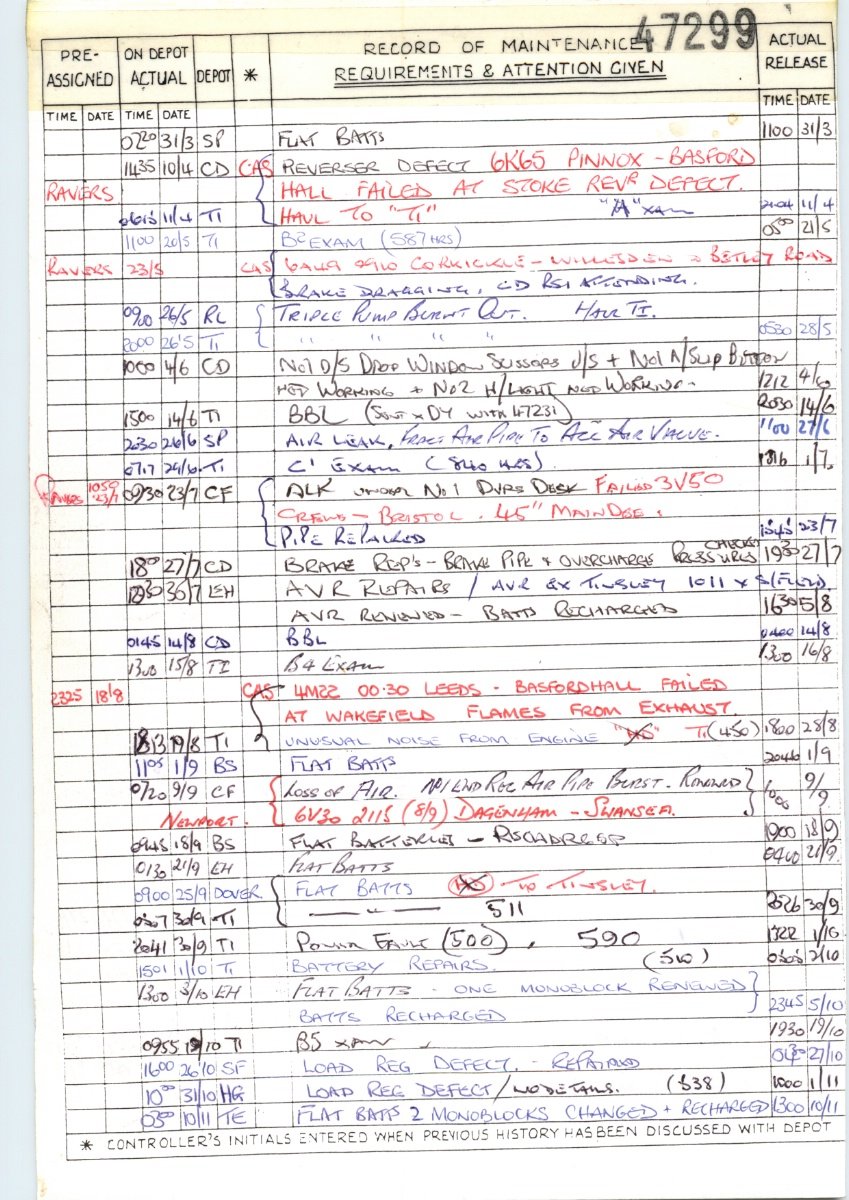 47299
PRE-ASSIGNED ON DEPOT ACTUAL DEPOT * RECORD OF MAINTENANCE REQUIREMENTS & ATTENTION GIVEN ACTUAL RELEASE
TIME DATE TIME DATE TIME DATE
0720 31/3 SP FLAT BATTS 1100 31/3
1435 10/4 CD CAS REVERSER DEFECT 6K65 PINNOX - BASFORD
RAVERS HALL FAILED AT STOKE REVR DEFECT.
0615 11/4 TI HAUL TO "TI" "A" XAM 2104 11/4
1100 20/5 TI B2 EXAM (587 HRS) 0500 21/5
RAVERS 23/5 CAS 0910 CORKICKLE - WILLESDEN BETLEY ROAD
BRAKE DRAGGING, CD RSI ATTENDING.
0900 26/5 RL TRIPLE PUMP BURNT OUT. HAUL TI.
2000 26/5 TI " " " " 0530 28/5
1000 4/6 CD No1 D/S DROP WINDOW SISSORS U/S + No1 N/SLIP BUTTON
NOT WORKING + No2 H/LIGHT NOT WORKING - 1212 4/6
1500 14/6 TI BBL (SENT X DY WITH 47231) 2030 14/6
2030 26/6 SP AIR LEAK, FRACT AIR PIPE TO AIR VALVE. 1100 27/6
0717 29/6 TI C' EXAM (840 HRS). 1816 1/7
RAVERS 1050 23/7 0930 23/7 CF ALK UNDER No1 DVRS DESK FAILED 3V50
CREWE - BRISTOL. 45" MAIN DGE.
PIPE REPAIRED 1545 23/7
1800 27/7 CD BRAKE REP'S - BRAKE PIPE & OVERCHARGE PRESSURES CHECKED 1930 27/7
1230 30/7 EH AVR REPAIRS / AVR EX TINSLEY 1011 X S/FIELD.
AVR RENEWED - BATTS RECHARGED 1630 5/8
0145 14/8 CD BBL 0400 14/8
1300 15/8 TI B4 EXAM 1300 16/8
2325 18/8 CAS 4M22 00.30 LEEDS - BASFORDHALL FAILED
AT WAKEFIELD FLAMES FROM EXHAUST
1813 19/8 TI UNUSUAL NOISE FROM ENGINE TI (450) 1800 28/8
1105 1/9 BS FLAT BATTS 2040 1/9
0720 9/9 CF LOSS OF AIR. No1 END RES AIR PIPE BURST. RENEWED 9/9
NEWPORT. 6V30 2115 (8/9) DAGENHAM - SWANSEA.
0945 18/9 BS FLAT BATTERIES - 1900 18/9
0130 21/9 EH FLAT BATTS 0400 21/9
0900 25/9 DOVER. FLAT BATTS TO TINSLEY.
0307 30/9 TI — " — 511 2526 30/9
2041 30/9 TI POWER FAULT (500). 590 1322 1/10
1501 1/10 TI BATTERY REPAIRS. (510) 0303 2/10
1300 3/10 EH FLAT BATTS - ONE MONOBLOCK RENEWED
BATTS RECHARGED 2345 5/10
0955 19/10 TI B5 XAM 1930 19/10
1600 26/10 SF LOAD REG DEFECT. - REPAIRED 0430 27/10
1000 31/10 HG LOAD REG DEFECT / NO DETAILS. (538) 1000 1/11
0300 10/11 TE FLAT BATTS 2 MONOBLOCKS CHANGED + RECHARGED 1300 10/11
* CONTROLLER'S INITIALS ENTERED WHEN PREVIOUS HISTORY HAS BEEN DISCUSSED WITH DEPOT